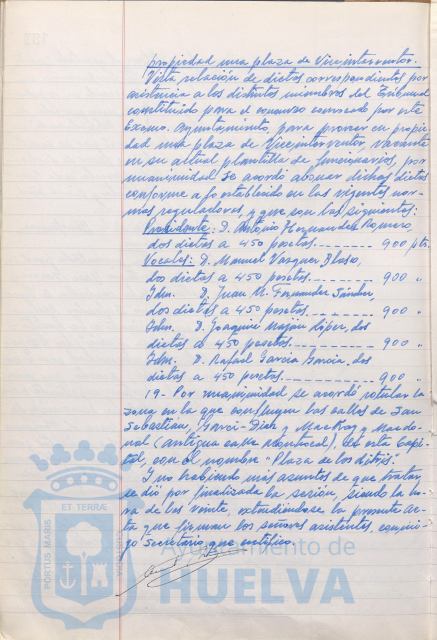 propiedad una plaza de Viceinterventor.
Vista relación de dietas correspondientes por
asistencia a los distintos miembros del Tribunal
constituido para el concurso convocado por este
Excmo. Ayuntamiento, para proveer en propie-
dad una plaza de Viceinterventor, vacante
en su actual plantilla de funcionarios, por
unanimidad se acordó abonar dichas dietas
conforme a lo establecido en las vigentes nor-
mas reguladoras y que son las siguientes:
Presidente: D. Antonio Hernandez Romero,
dos dietas a 450 pesetas. 900 pts.
Vocales: D. Manuel Vazquez Blaso,
dos dietas a 450 pesetas. 900 "
Idm. D. Juan M. Fernandez Sánchez,
dos dietas a 450 pesetas. 900 "
Idm. D. Joaquin López, dos
dietas a 450 pesetas. 900 "
Idm. D. Rafael García García, dos
dietas a 450 pesetas. 900 "
19.- Por unanimidad se acordó rotular la
zona en la que confluyen las calles de San
Sebastián, y Mackay y Macdo-
nal (antigua calle), de esta Capi-
tal, con el nombre "Plaza de los
Y no habiendo más asuntos de que tratar
se dio por finalizada la sesión, siendo la ho-
ra de las veinte, extendiéndose la presente ac-
ta que firman los señores asistentes, conmi-
go Secretario, que certifico.
PORTUS MARIS ET TERRAE CUSTODIA
Ayuntamiento de
HUELVA